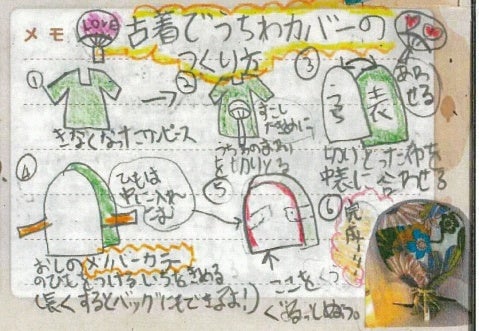 メモ
LOVE
古着でうちわカバーの
つくり方
①
きなくなったワンピース
②
すこし
大きめに
うちわのまわり
を切りとる
③
うら
表
あわ
せる
切りとった布を
中表に合わせる
④
ひもは
中に入れ
こむ
おしのメンバーカラー
のひもをつけるいちをきめる
(長くするとバッグにもできるよ!)
⑤
ここをぐ
ぐるっとぬう。
⑥
完成!!